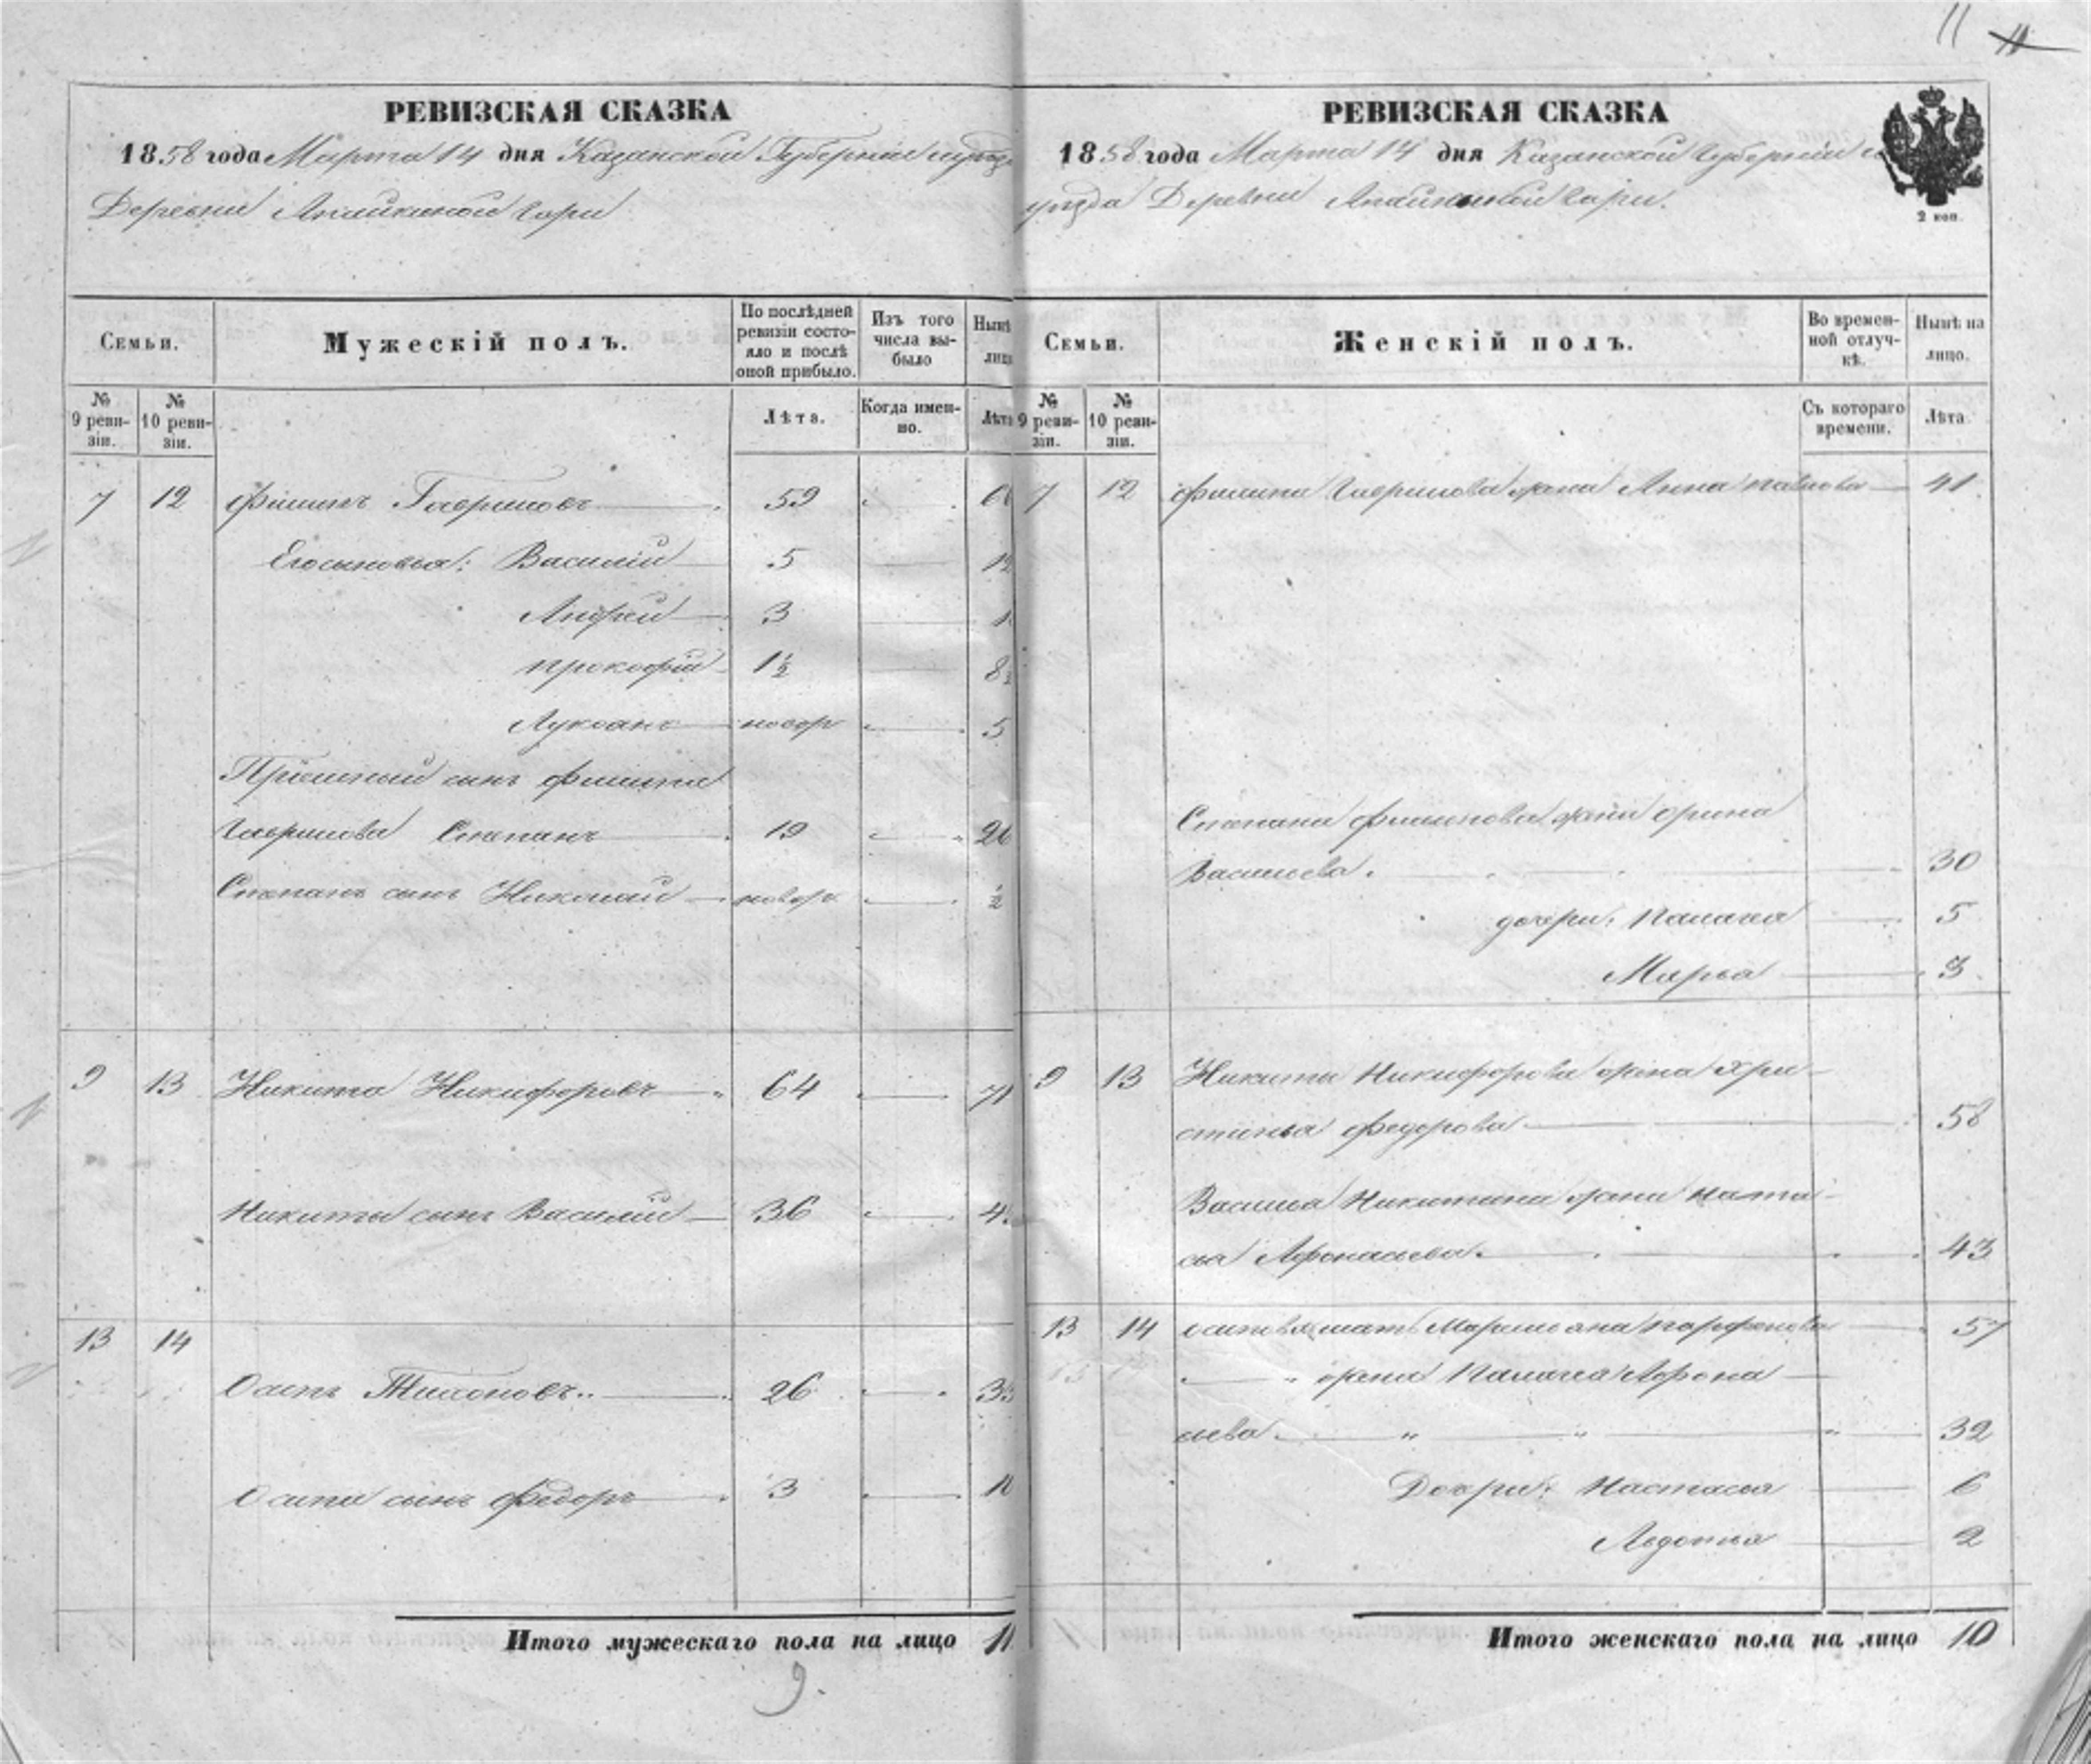 11 11
РЕВИЗСКАЯ СКАЗКА
1858 года Марта 14 дня Казанской Губернии и уезд
Деревни гари
Семьи. Мужескій полъ. По послѣдней ревизіи состояло и послѣ оной прибыло. Изъ того числа выбыло Нынѣ лиц
№ 9 ревизіи. № 10 ревизіи. Лѣта. Когда именно. Лѣта
7 12 Филипъ Гавриловъ 59
Его сыновья: Василій 5 12
Андрей 3 1
Прокофій 1½ 8½
Лукоянъ новор 5
Пріемный сынъ Филипа
Гаврилова Степанъ 19 26
Степанъ сынъ Николай новор ½
9 13 Никита Никифоровъ 64 71
Никиты сынъ Василій 36 4
13 14
Осипъ Тихоновъ 26 33
Осипа сынъ Федоръ 3 10
Итого мужескаго пола на лицо 11
9.
РЕВИЗСКАЯ СКАЗКА
1858 года Марта 14 дня Казанской Губерніи и
уезда Деревни Гари.
2 коп.
Семьи. Женскій полъ. Во временной отлучкѣ. Нынѣ на лицо.
№ 9 ревизіи. № 10 ревизіи. Съ котораго времени. Лѣта
7 12 Филипа Гаврилова жена Анна Павлова 41
Степана Филипова жена Орина
Васильева. 30
дочери: Палагея 5
Марья 3
9 13 Никиты Никифорова жена Хри-
стинья Федорова 58
Василья Никитина жена Ната-
лья Афонасьева 43
13 14 Осипова мать Маремьяна Парфенова 57
жена Палагея Афона
сьева 32
Дочери: Настасья 6
Авдотья 2
Итого женскаго пола на лицо 10